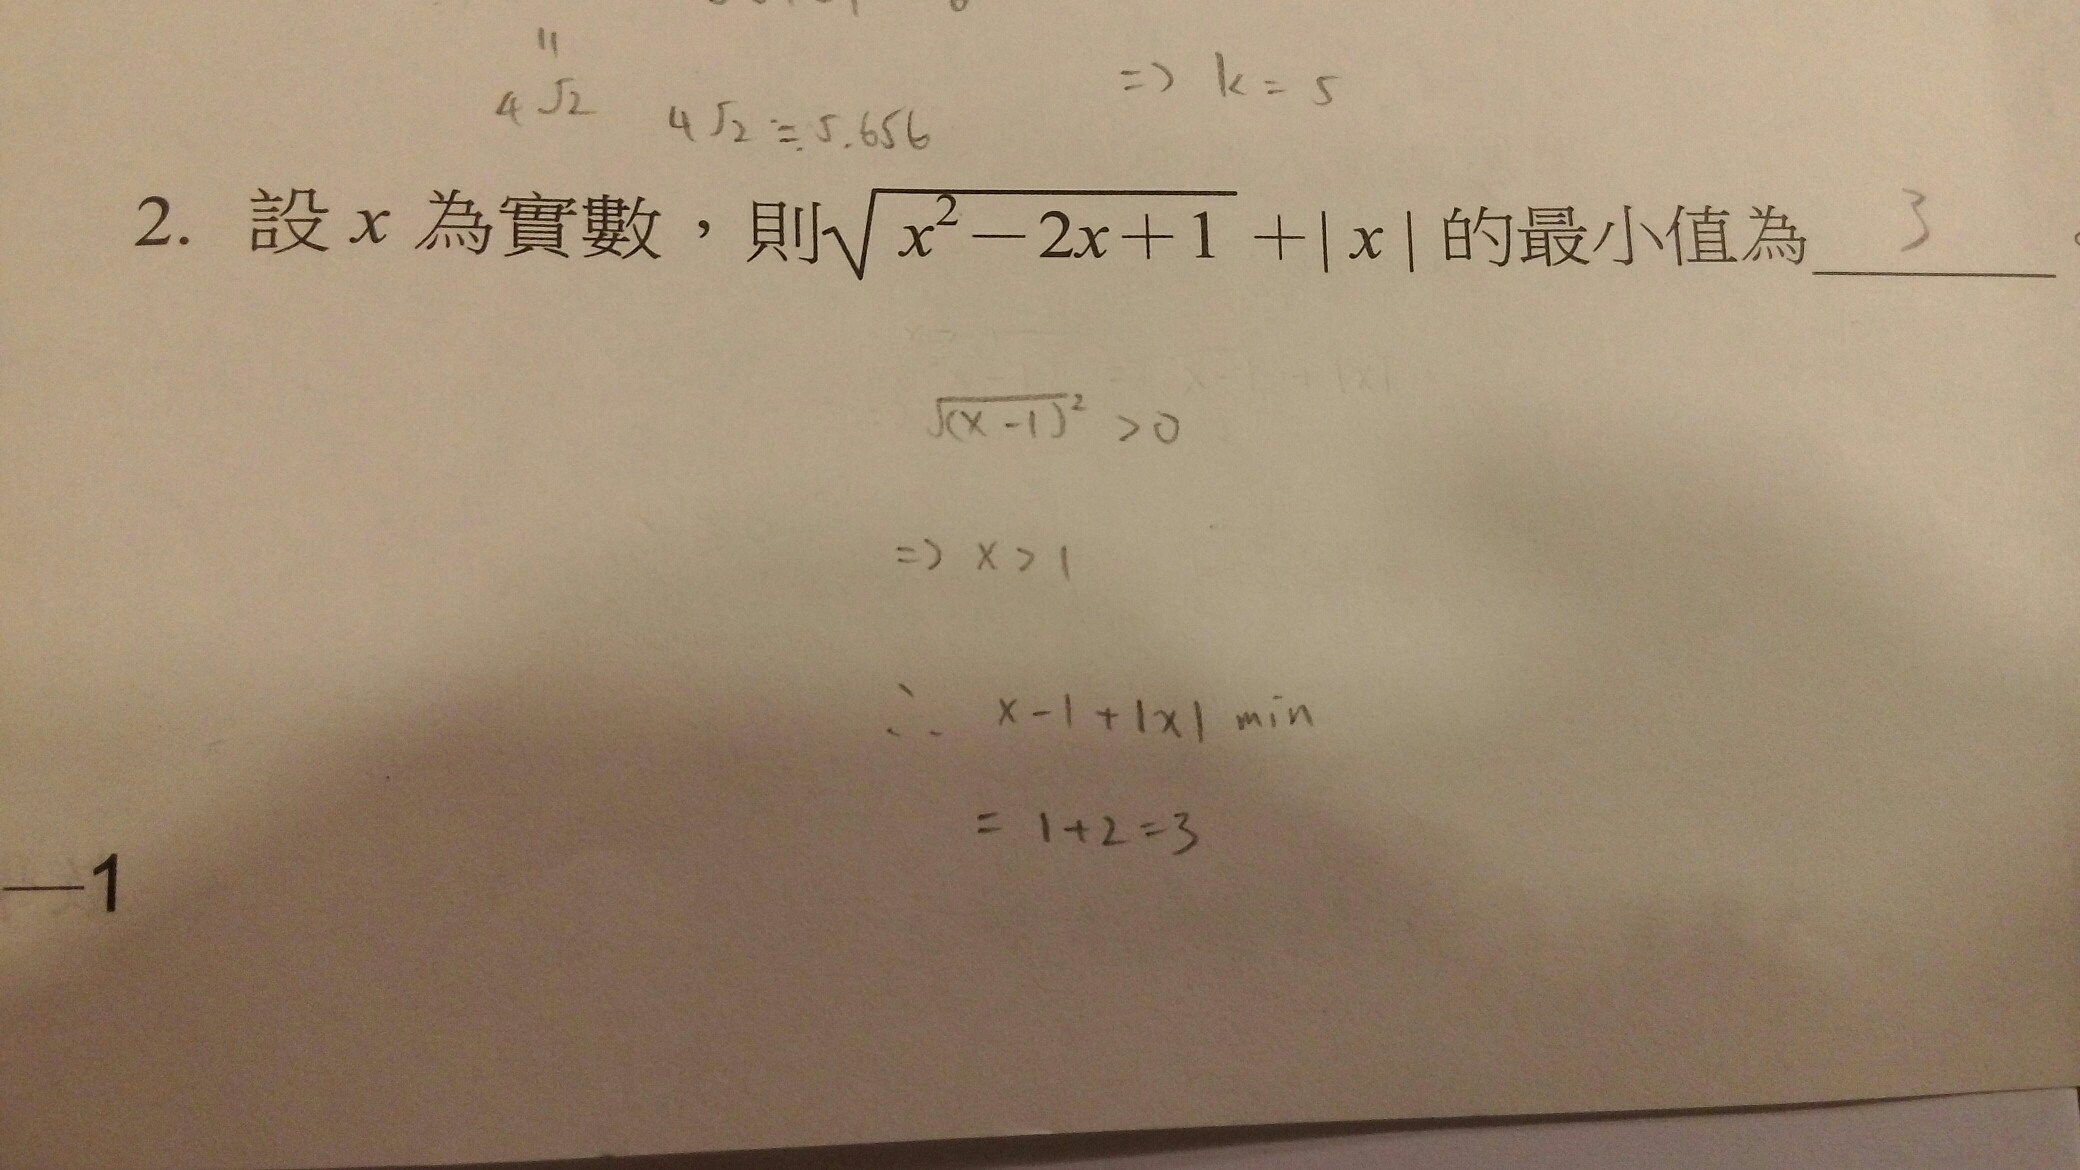 "
4√2
4√2 ≒ 5.656
=> k = 5
2. 設 x 為實數，則√(x²－2x＋1) ＋| x | 的最小值為 3 。
√(x-1)² > 0
=> x > 1
∴ x-1+|x| min
= 1+2=3
—1